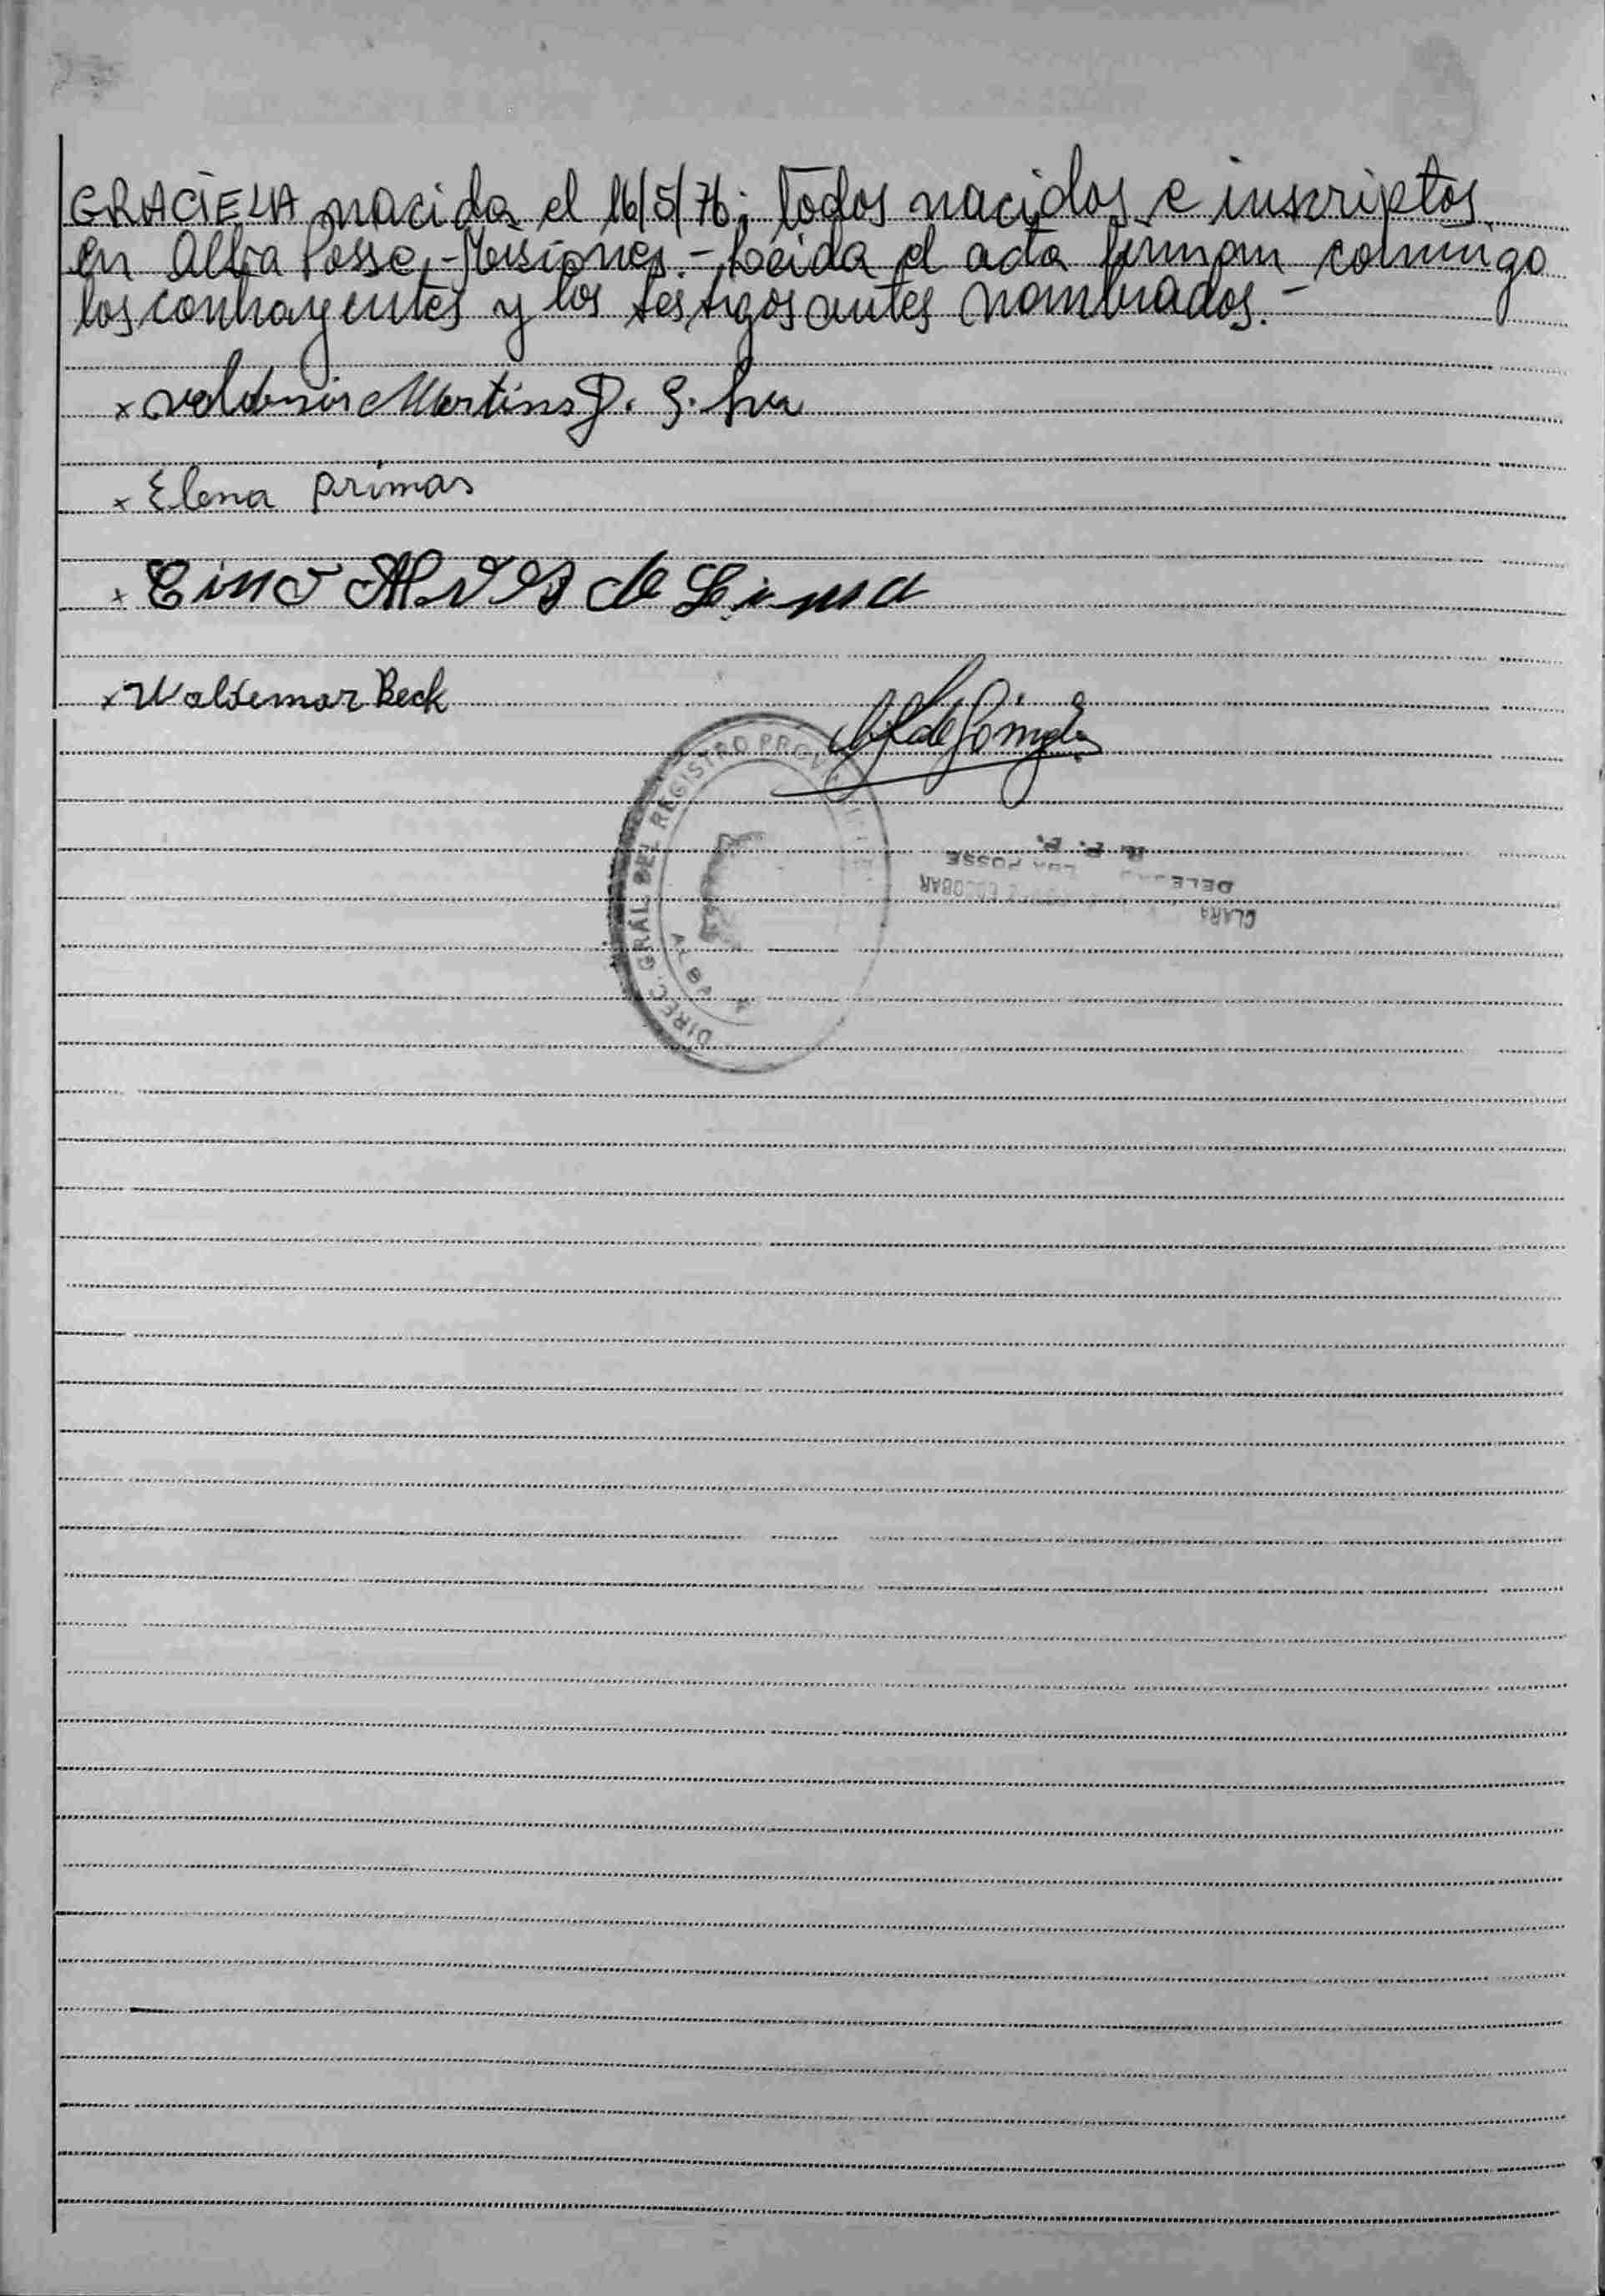 GRACIELA nacida el 16/5/76; todos nacidos e inscriptos
en Alba Posse,-Misiones.- Leida el acta firman conmigo
los contrayentes y los testigos antes nombrados.-
x Martins
x Elena primas
x Cino Alves de Lima
x Waldemar Beck
DIREC. GRAL. DEL REGISTRO PROV
ALBA
R. P. P.
POSSE
ESCOBAR
CLARA